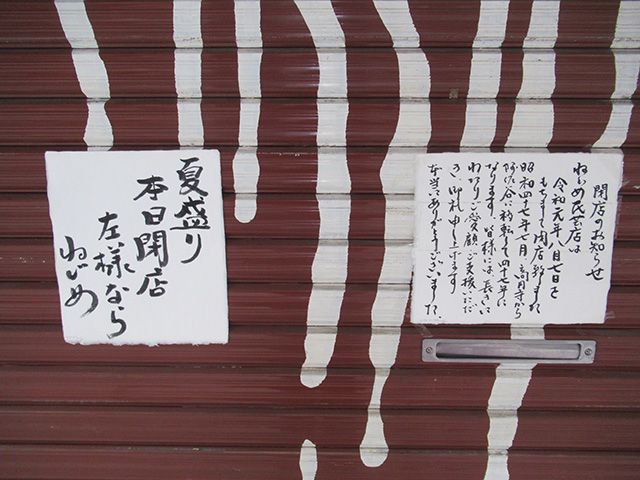 閉店のお知らせ
ねじめ民芸店は
令和元年八月七日を
もちまして閉店致しました
昭和四十七年七月高円寺から
阿佐谷に移転して四十七年に
なります。皆様には、長きにい
わたりご愛顧、ご支援いただ
き、御礼申し上げます
本当にありがとうございました。
夏盛り
本日閉店
左様なら
ねじめ